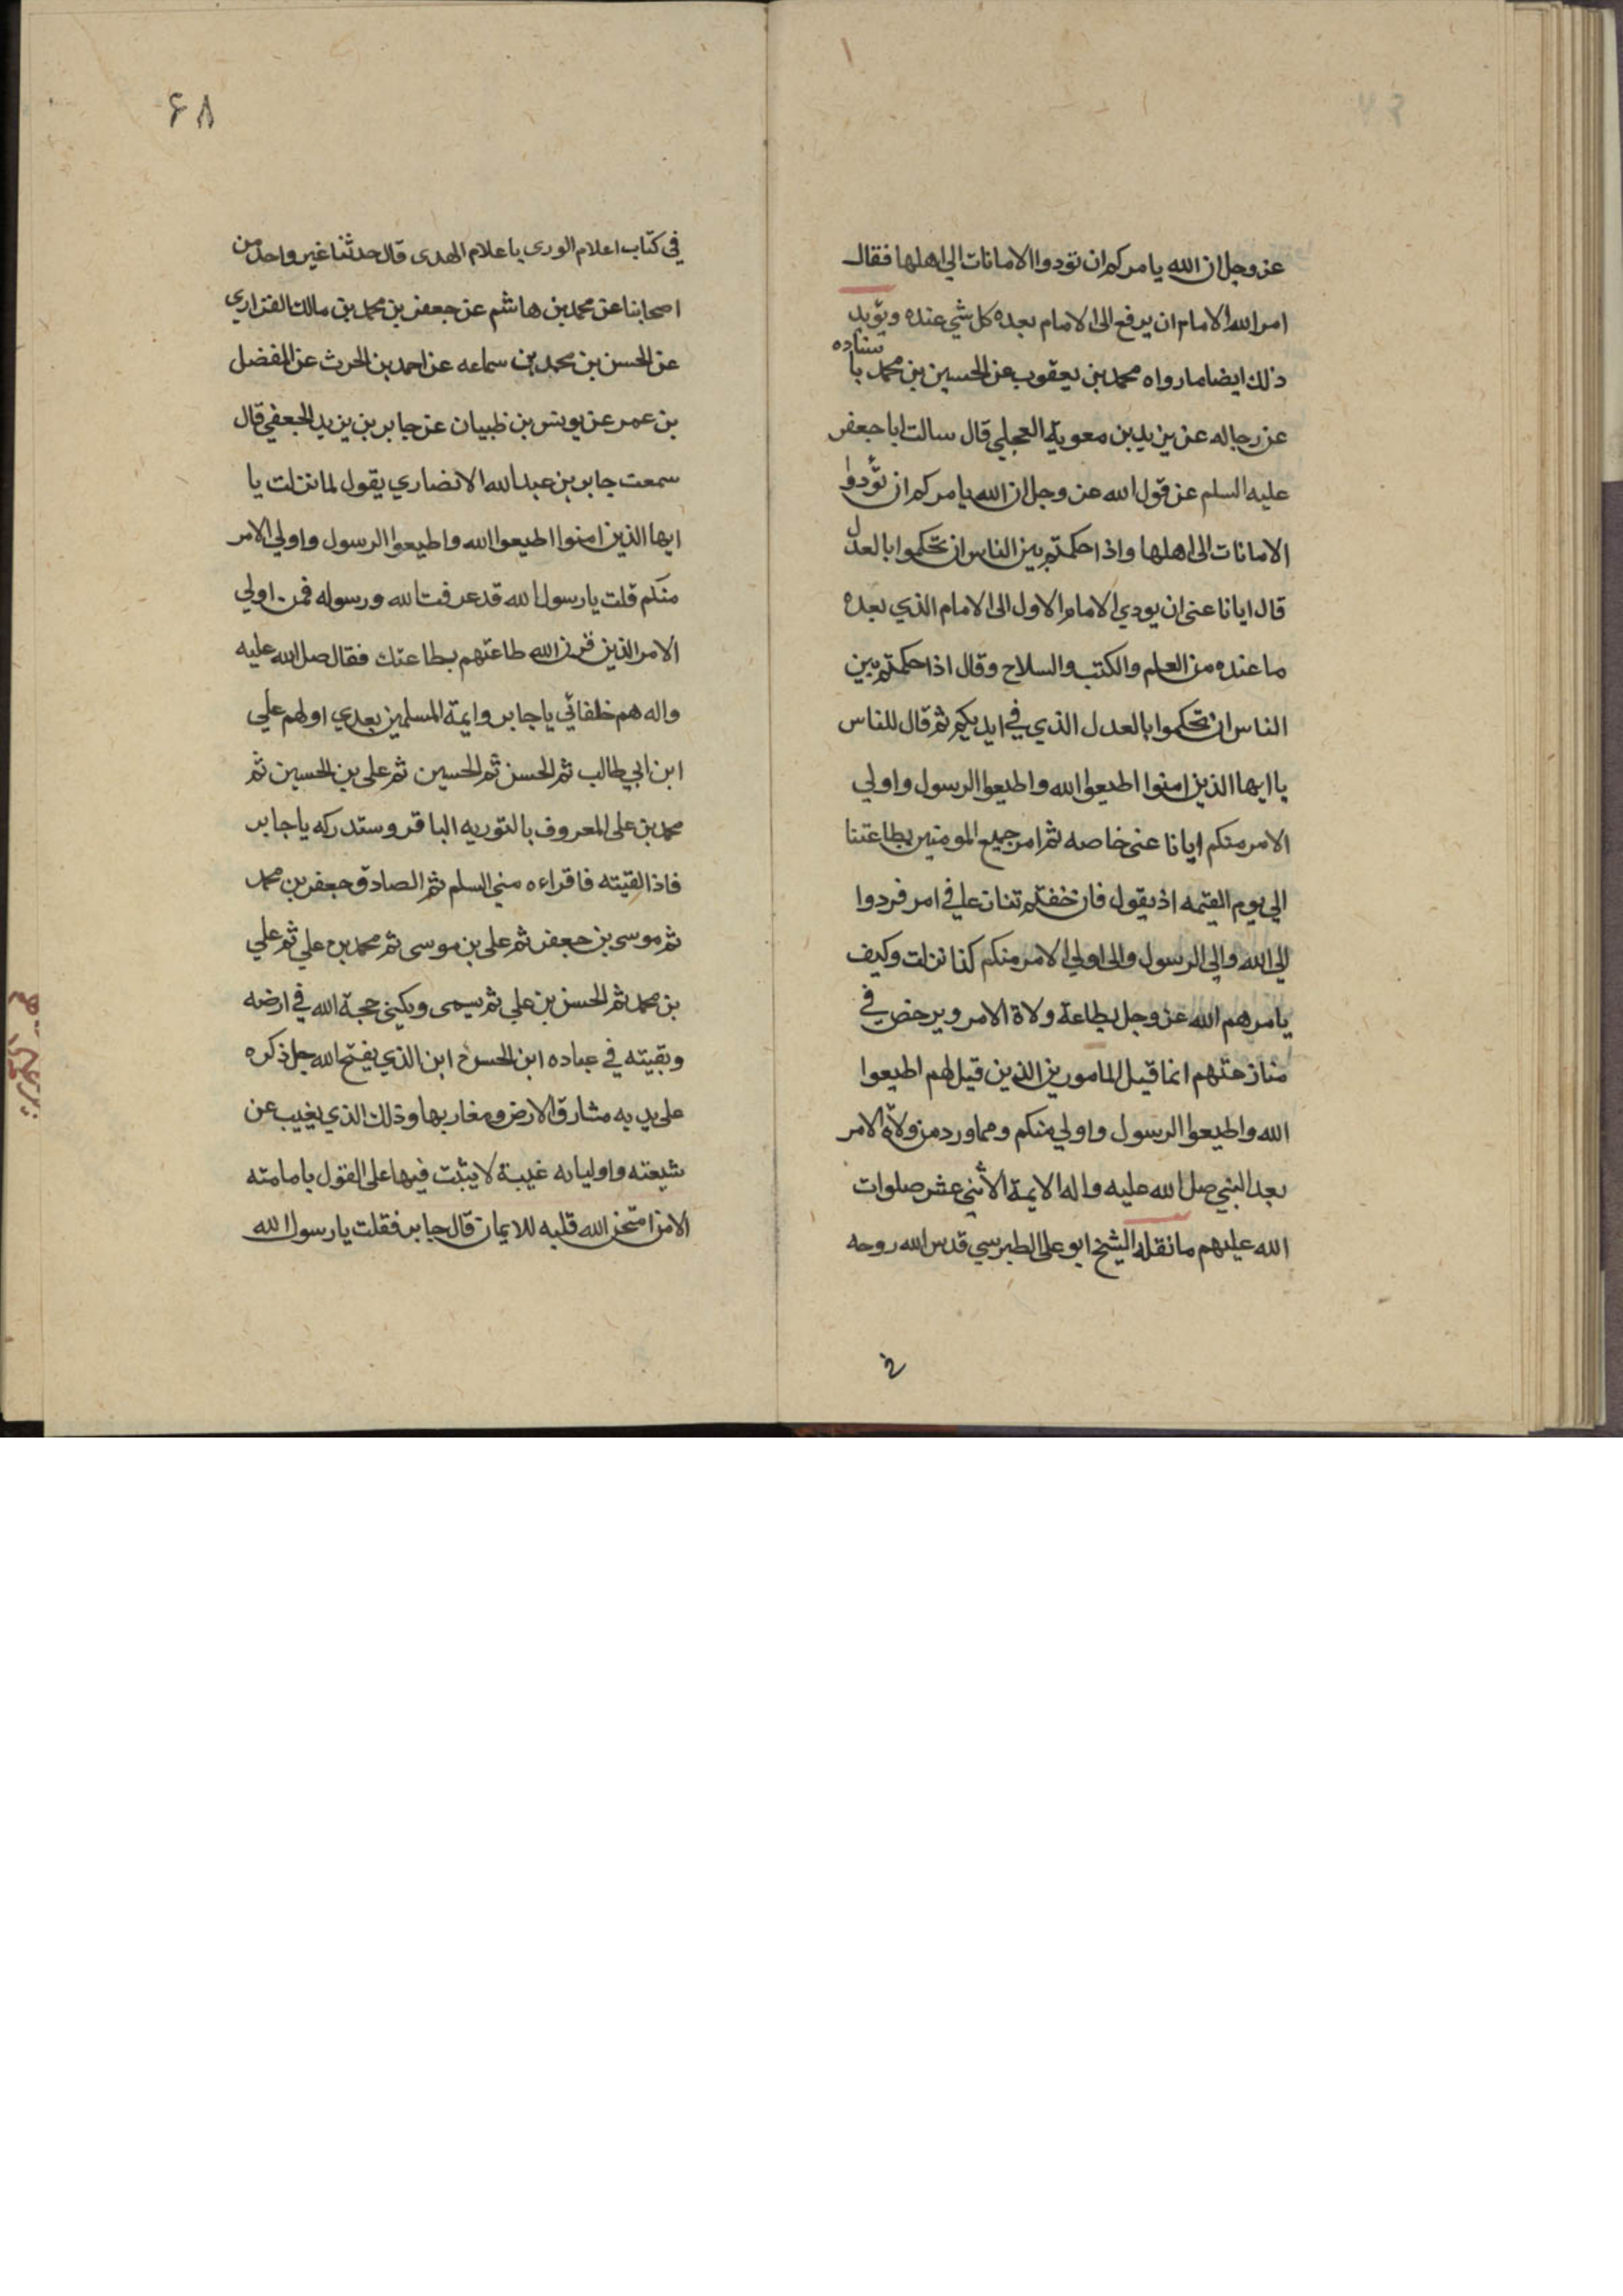 عز وجل ان الله يامركم ان تؤدوا الامانات الى اهلها فقال
امر الله الامام ان يرفع الى الامام بعده كل شي عنده ويؤيد
ذلك ايضا ما رواه محمد بن يعقوب عن الحسين بن محمد باسناده
عن رجاله عن يزيد بن معوية العجلي قال سالت ابا جعفر
عليه السلم عن قول الله عز وجل ان الله يامركم ان تؤدوا
الامانات الى اهلها واذا حكمتم بين الناس ان تحكموا بالعدل
قال ايانا عنى ان يودي الامام الاول الى الامام الذي بعده
ما عنده من العلم والكتب والسلاح وقال اذا حكمتم بين
الناس ان تحكموا بالعدل الذي في ايديكم ثم قال للناس
يا ايها الذين امنوا اطيعوا الله واطيعوا الرسول واولي
الامر منكم ايانا عنى خاصه ثم امر جميع المومنين بطاعتنا
الى يوم القيمه اذ يقول فان خفتم تنازعا في امر فردوا
الى الله والى الرسول والى اولي الامر منكم كذا نزلت وكيف
يامرهم الله عز وجل بطاعة ولاة الامر ويرخص في
منازعتهم انما قيل للمامورين الذين قيل لهم اطيعوا
الله واطيعوا الرسول واولي منكم ومما ورد من ولاة الامر
بعد النبي صلى الله عليه واله الايمة الاثني عشر صلوات
الله عليهم ما نقله الشيخ ابو على الطبرسي قدس الله روحه
في
٦٨
في كتاب اعلام الورى باعلام الهدى قال حدثنا غير واحد من
اصحابنا عن محمد بن هاشم عن جعفر بن محمد بن مالك الفزاري
عن الحسن بن محمد بن سماعه عن احمد بن الحرث عن المفضل
بن عمر عن يونس بن ظبيان عن جابر بن يزيد الجعفي قال
سمعت جابر بن عبد الله الانصاري يقول لما نزلت يا
ايها الذين امنوا اطيعوا الله واطيعوا الرسول واولي الامر
منكم قلت يا رسول الله قد عرفت الله ورسوله فمن اولي
الامر الذين قرن الله طاعتهم بطاعتك فقال صلى الله عليه
واله هم خلفائي يا جابر وايمة المسلمين بعدي اولهم علي
ابن ابي طالب ثم الحسن ثم الحسين ثم علي بن الحسين ثم
محمد بن علي المعروف بالتوريه الباقر وستدركه يا جابر
فاذا لقيته فاقراءه مني السلم ثم الصادق جعفر بن محمد
ثم موسى بن جعفر ثم على بن موسى ثم محمد بن علي ثم علي
بن محمد ثم الحسن بن علي ثم سمي وكيني حجة الله في ارضه
وبقيته في عباده ابن الحسن ابن الذي يفتح الله جل ذكره
على يديه مشارق الارض ومغاربها وذلك الذي يغيب عن
شيعته واوليايه غيبة لا يثبت فيها على القول بامامته
الا من امتحن الله قلبه للايمان قال جابر فقلت يا رسول الله